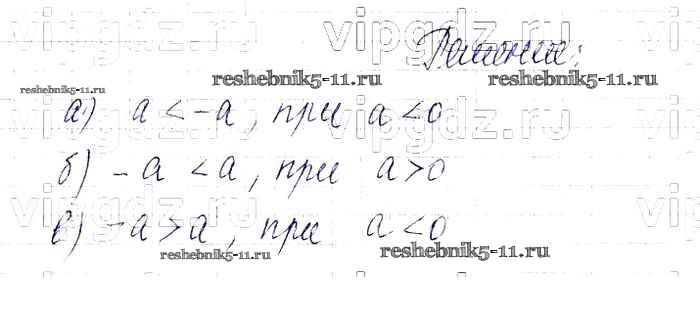 vipgdz.ru vipgdz.ru
Решение:
reshebnik5-11.ru reshebnik5-11.ru
reshebnik5-11.ru
а) a < -a, при a < 0
vipgdz.ru vipgdz.ru
б) -a < a, при a > 0
vipgdz.ru
в) -a > a, при a < 0
reshebnik5-11.ru reshebnik5-11.ru